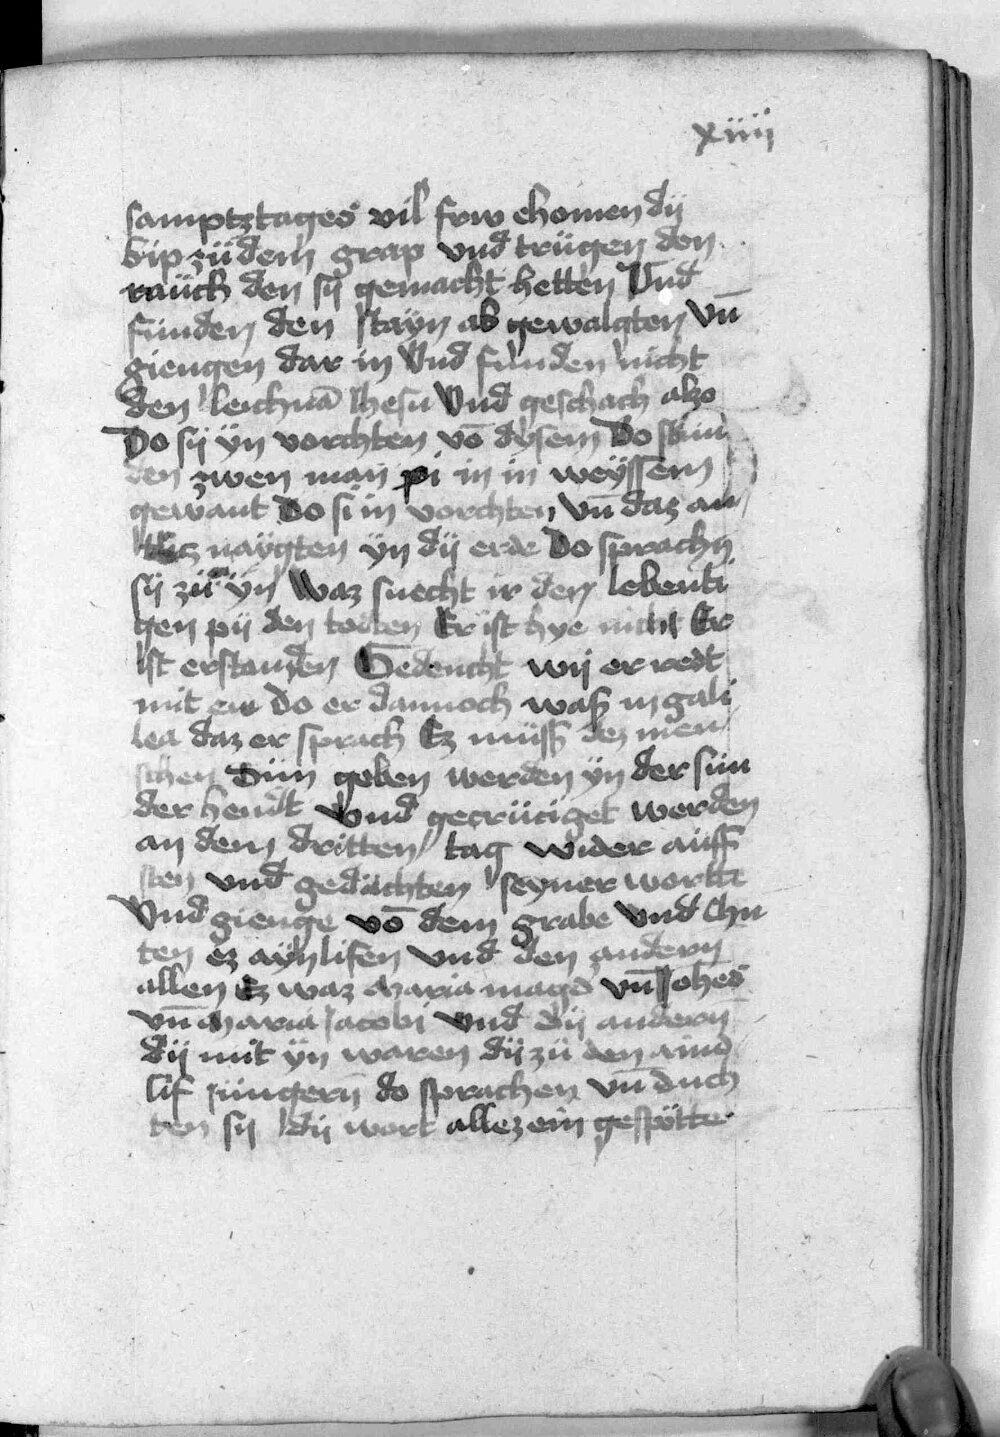 xiiij
samptztages vil frw chomen dij
bip zü dem grap vnd trügen den
rauch den sij gemacht hetten Vnd
funden den stayn ab gewalgten vn̄
giengen dar in Vnd funden nicht
den leichnā Ihesu Vnd geschach alzo
Do sij ÿn vorchten vō dysem Do stün
den zwen man pi in in weÿssem
gewant Do si in vorchten vn̄ daz an
tlitz naÿgten ÿn dij erde Do sprachn̄
sij zü ÿn Waz suecht ir den lebenti
gen pij den todten Er ist hye nicht Er
Ist erstanden Gedencht wij er redt
mit ew do er dannoch waß in gali
lea daz er sprach Ez müß dez men
schen Sün geben werden ÿn der sün
der hendt Vnd gecrüciget werden
an dem dritten tag wider auff
sten vnd gedachten seyner wortte
Vnd gienge vō dem grabe Vnd chu
ten ez aÿnlifen vnd den andern
allen Ez waz Maria magd vn̄ Iohes
vn̄ Maria Jacobi Vnd dij andern̄
dij mit ÿn waren dij zü den aind
lif jüngern̄ do sprachen vn̄ duch
ten sij dij wort allez ein gespötte